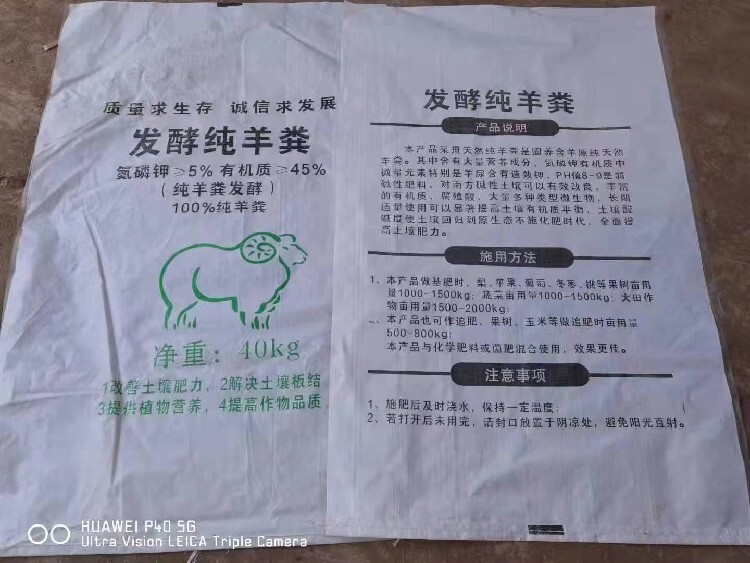 质量求生存 诚信求发展
发酵纯羊粪
氮磷钾≥5% 有机质≥45%
(纯羊粪发酵)
100%纯羊粪
净重: 40kg
1改善土壤肥力, 2解决土壤板结
3提供植物营养, 4提高作物品质
发酵纯羊粪
产品说明
本产品采用天然纯羊粪是圈养含羊原纯天然
羊粪。其中含有大量营养成分, 氮磷钾有机质中
微量元素特别是羊尿含有速效钾, PH值8-9是弱
碱性肥料, 对南方碱性土壤可以有效改良, 丰富
的有机质、腐殖酸、大量多种类型微生物, 长期
适量使用可以显著提高土壤有机质平衡, 土壤酸
碱度使土壤回归到原生态不施化肥时代, 全面提
高土壤肥力。
施用方法
1、本产品做基肥时, 梨、苹果、葡萄、冬枣、桃等果树亩用
量1000-1500kg; 蔬菜亩用量1000-1500kg; 大田作
物亩用量1500-2000kg;
二、本产品也可作追肥, 果树、玉米等做追肥时亩用量
500-800kg;
本产品与化学肥料或菌肥混合使用, 效果更佳。
注意事项
1、施肥后及时浇水, 保持一定温度;
2、若打开后未用完, 请封口放置于阴凉处, 避免阳光直射。
HUAWEI P40 5G
Ultra Vision LEICA Triple Camera